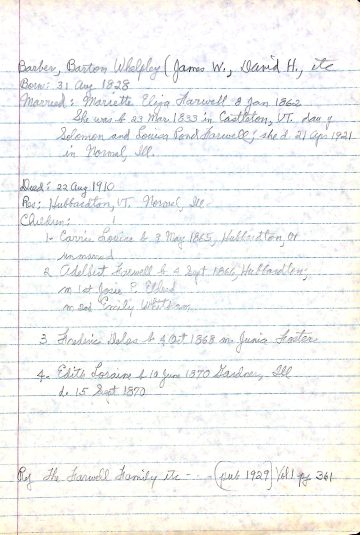 Barber, Barton Whelpley (James W., David H., etc
Born: 31 Aug 1828
Married: Mariette Eliza Farwell 8 Jan 1862
She was b 23 Mar 1833 in Castleton, VT. dau of
Solomon and Louisa Pond Farwell; she d 21 Apr 1921
in Normal, Ill.
Died: 22 Aug 1910
Res: Hubbardton, VT. Normal, Ill
Children:
1- Carrie Louise b 3 May 1865, Hubbardton, Vt
unmarried
2. Adelbert Farwell b 4 Sept 1866, Hubbardton,
m 1st Josie P.
m 2nd Emily
3. Frederic b 4 Oct 1868 m Junia Foster
4. Edith Loraine b 10 June 1870 Gardner, Ill
d. 15 Sept 1870
Ref The Farwell Family etc - - - (pub 1929) Vol 1 pg 361